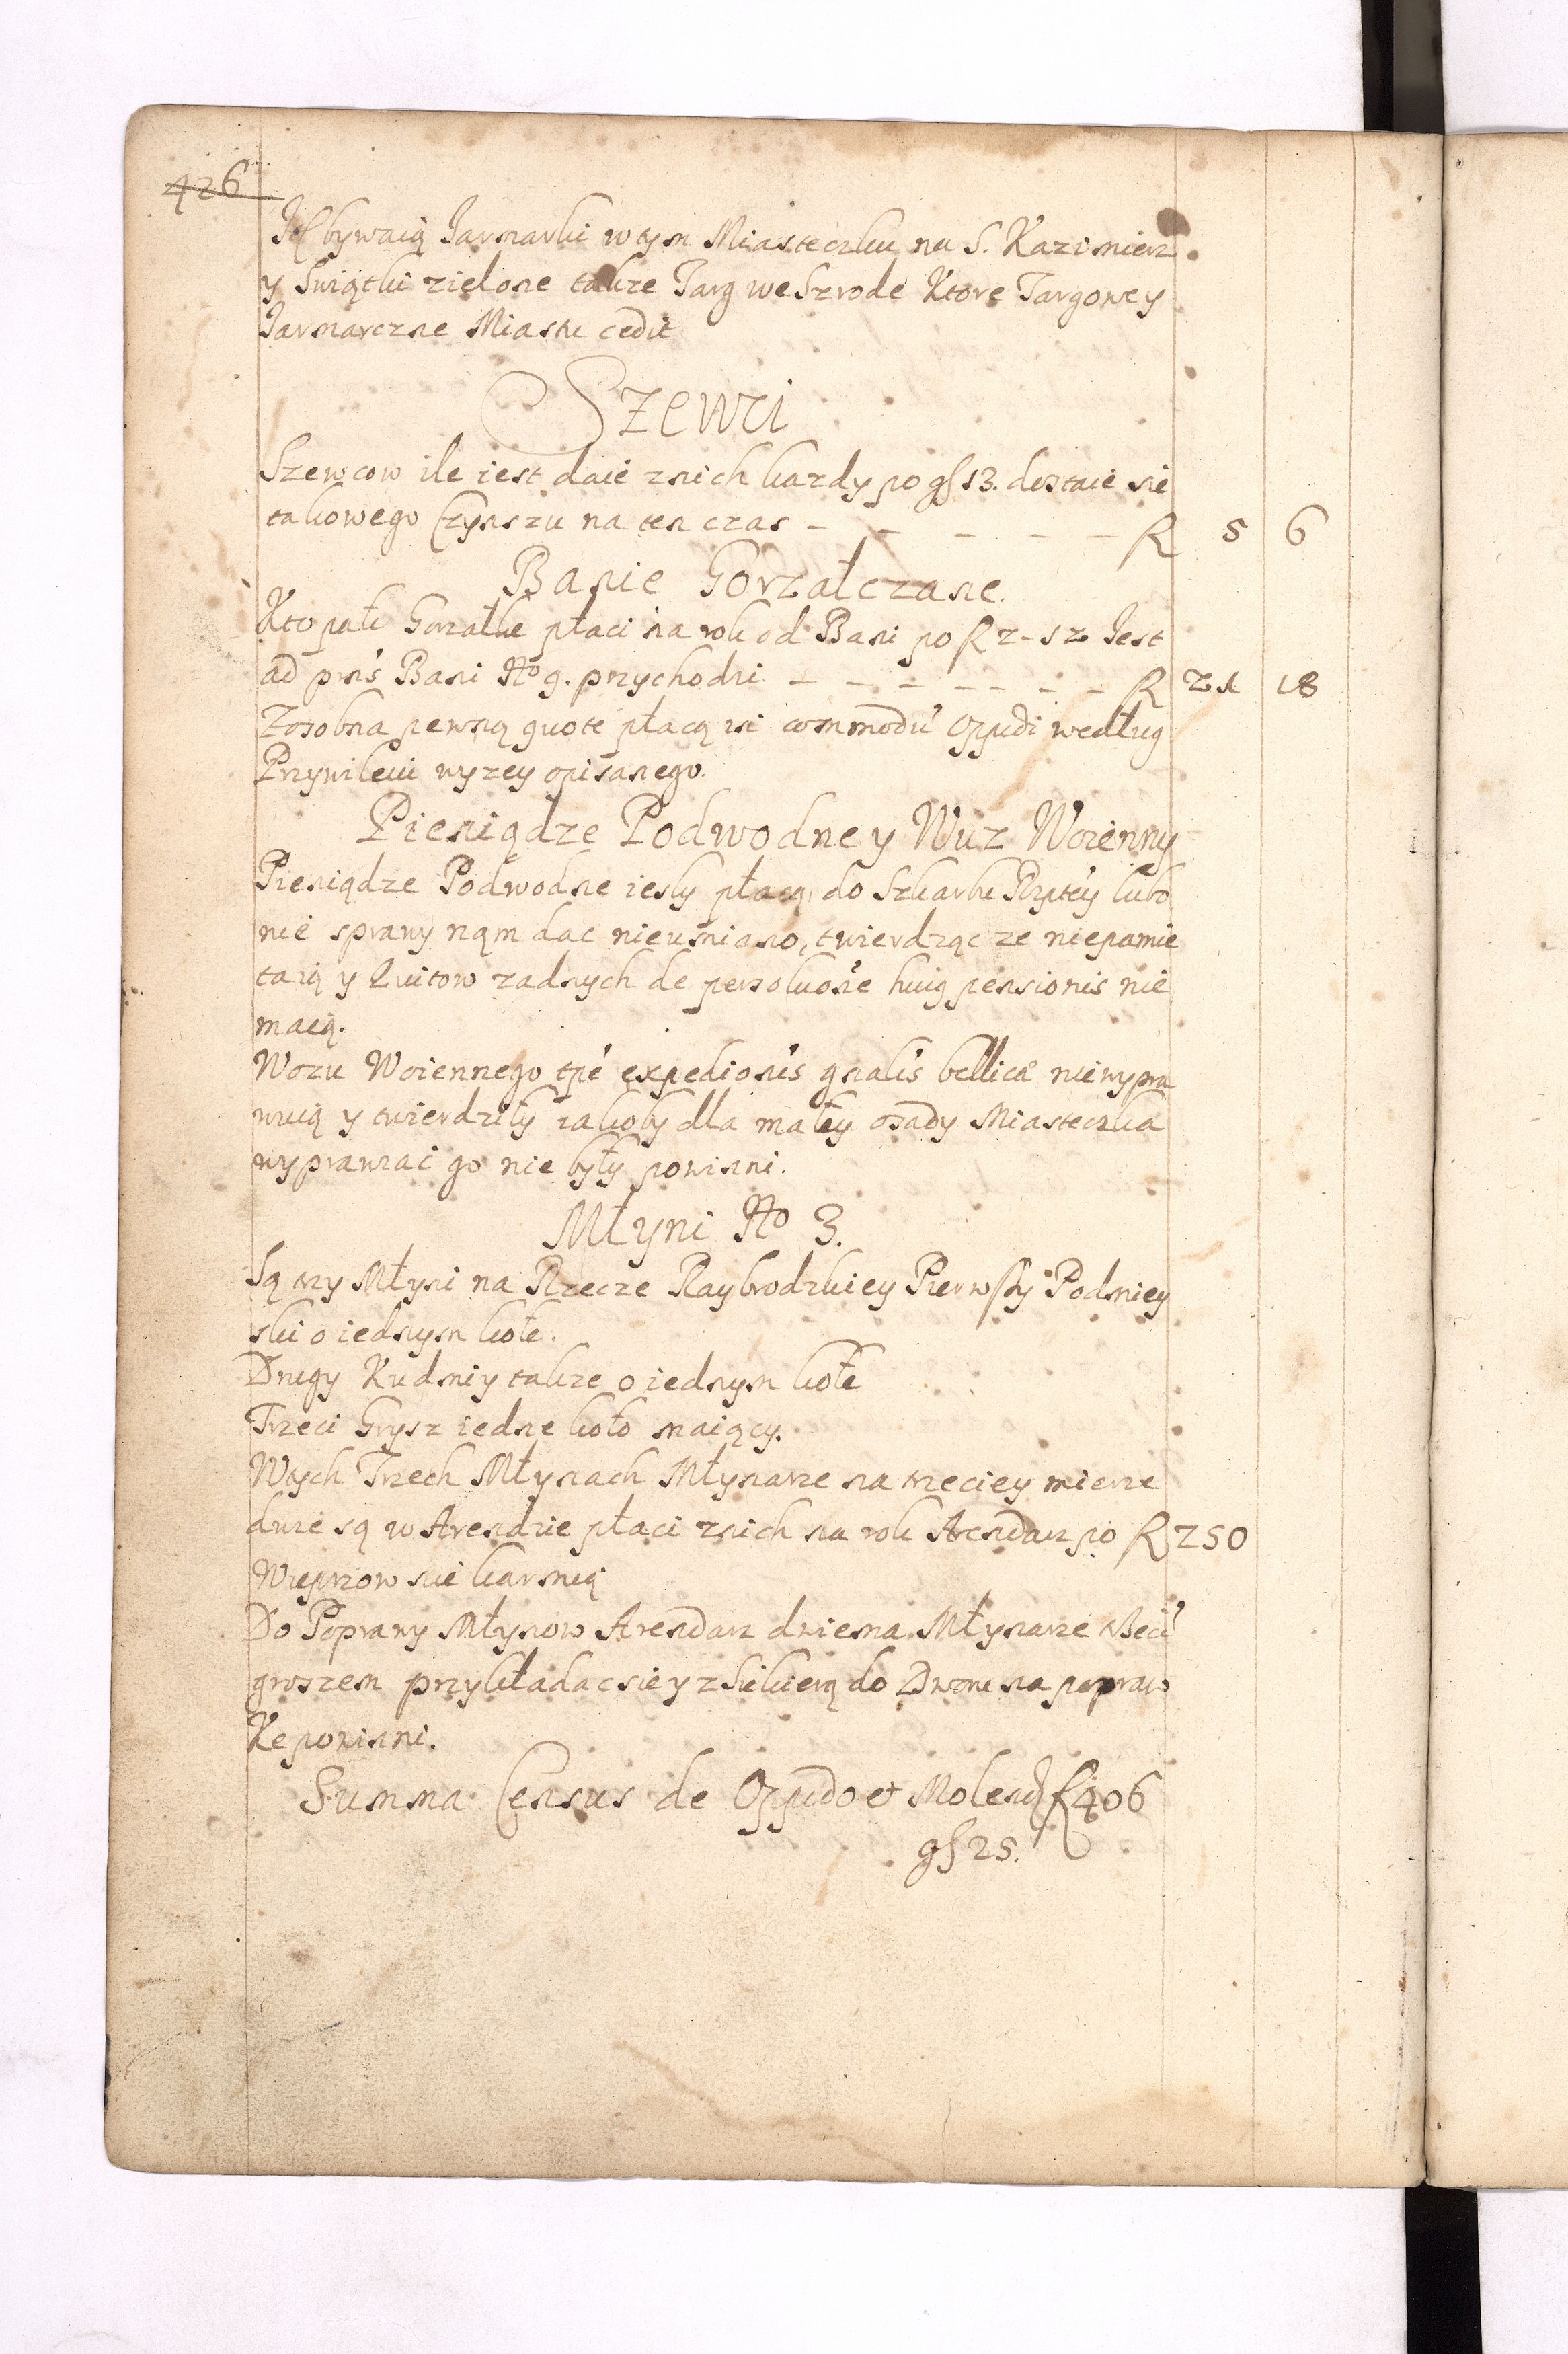 426
Itẽ bywaią Jarmarki w tym Miasteczku na S. Kazimierz
y Swiątki zielone takze Targ we Szrodę Ktore Targowe y
Jarmarczne Miastu cedit
Szewci
Szewcow ile iest daie z nich kazdy po gſ 13. dostaie sie
takowego Czynszu na ten czas - - - - - ƒl 5 6
Banie Gorzałczane.
Kto pali Gorzałkę płaci na rok od Bani po ƒl 2-12 Jest
ad prns Bani No 9. przychodzi - - - - - - ƒl 21 18
Zosobna pewną quotę płacą in commodũ Oppidi według
Przywileiu wyzey opisanego.
Pieniądze Podwodne y Wuz Woienny
Pieniądze Podwodne iesly płacą do Szkarbu Rzptey lubo
nie sprawy nąm dac nieumiano, twierdząc ze niepamie
taią y Quitow zadnych de persoluoñe huiq pensionis nie
maią.
Wozu Woiennego tpe expedionis gnalis bellicæ niewypra
wuią y twierdziły iakoby dla małey osady Miasteczka
wyprawiac go nie były powinni.
Młyni No 3.
Są trzy Młyni na Rzecze Raybrodzkiey Pierwszy Podmiey
ski o iednym kole.
Drugy Kudmiy takze o iednym kole
Trzeci Grysz iedne koło maiący.
W tych Trzech Młynach Młynarze na trzeciey mierze
dwie są w Arendzie płaci znich na rok Arendarz po ƒl 250
Wieprzow nie karmią
Do Poprawy Młynow Arendarz dwiema Młynarze trzeciĩ
groszem przykładac sie y z siekierą do Drzewa na popraw
Ke powinni.
Summa Census de Oppido et Molend ƒl 406
gſ 25.